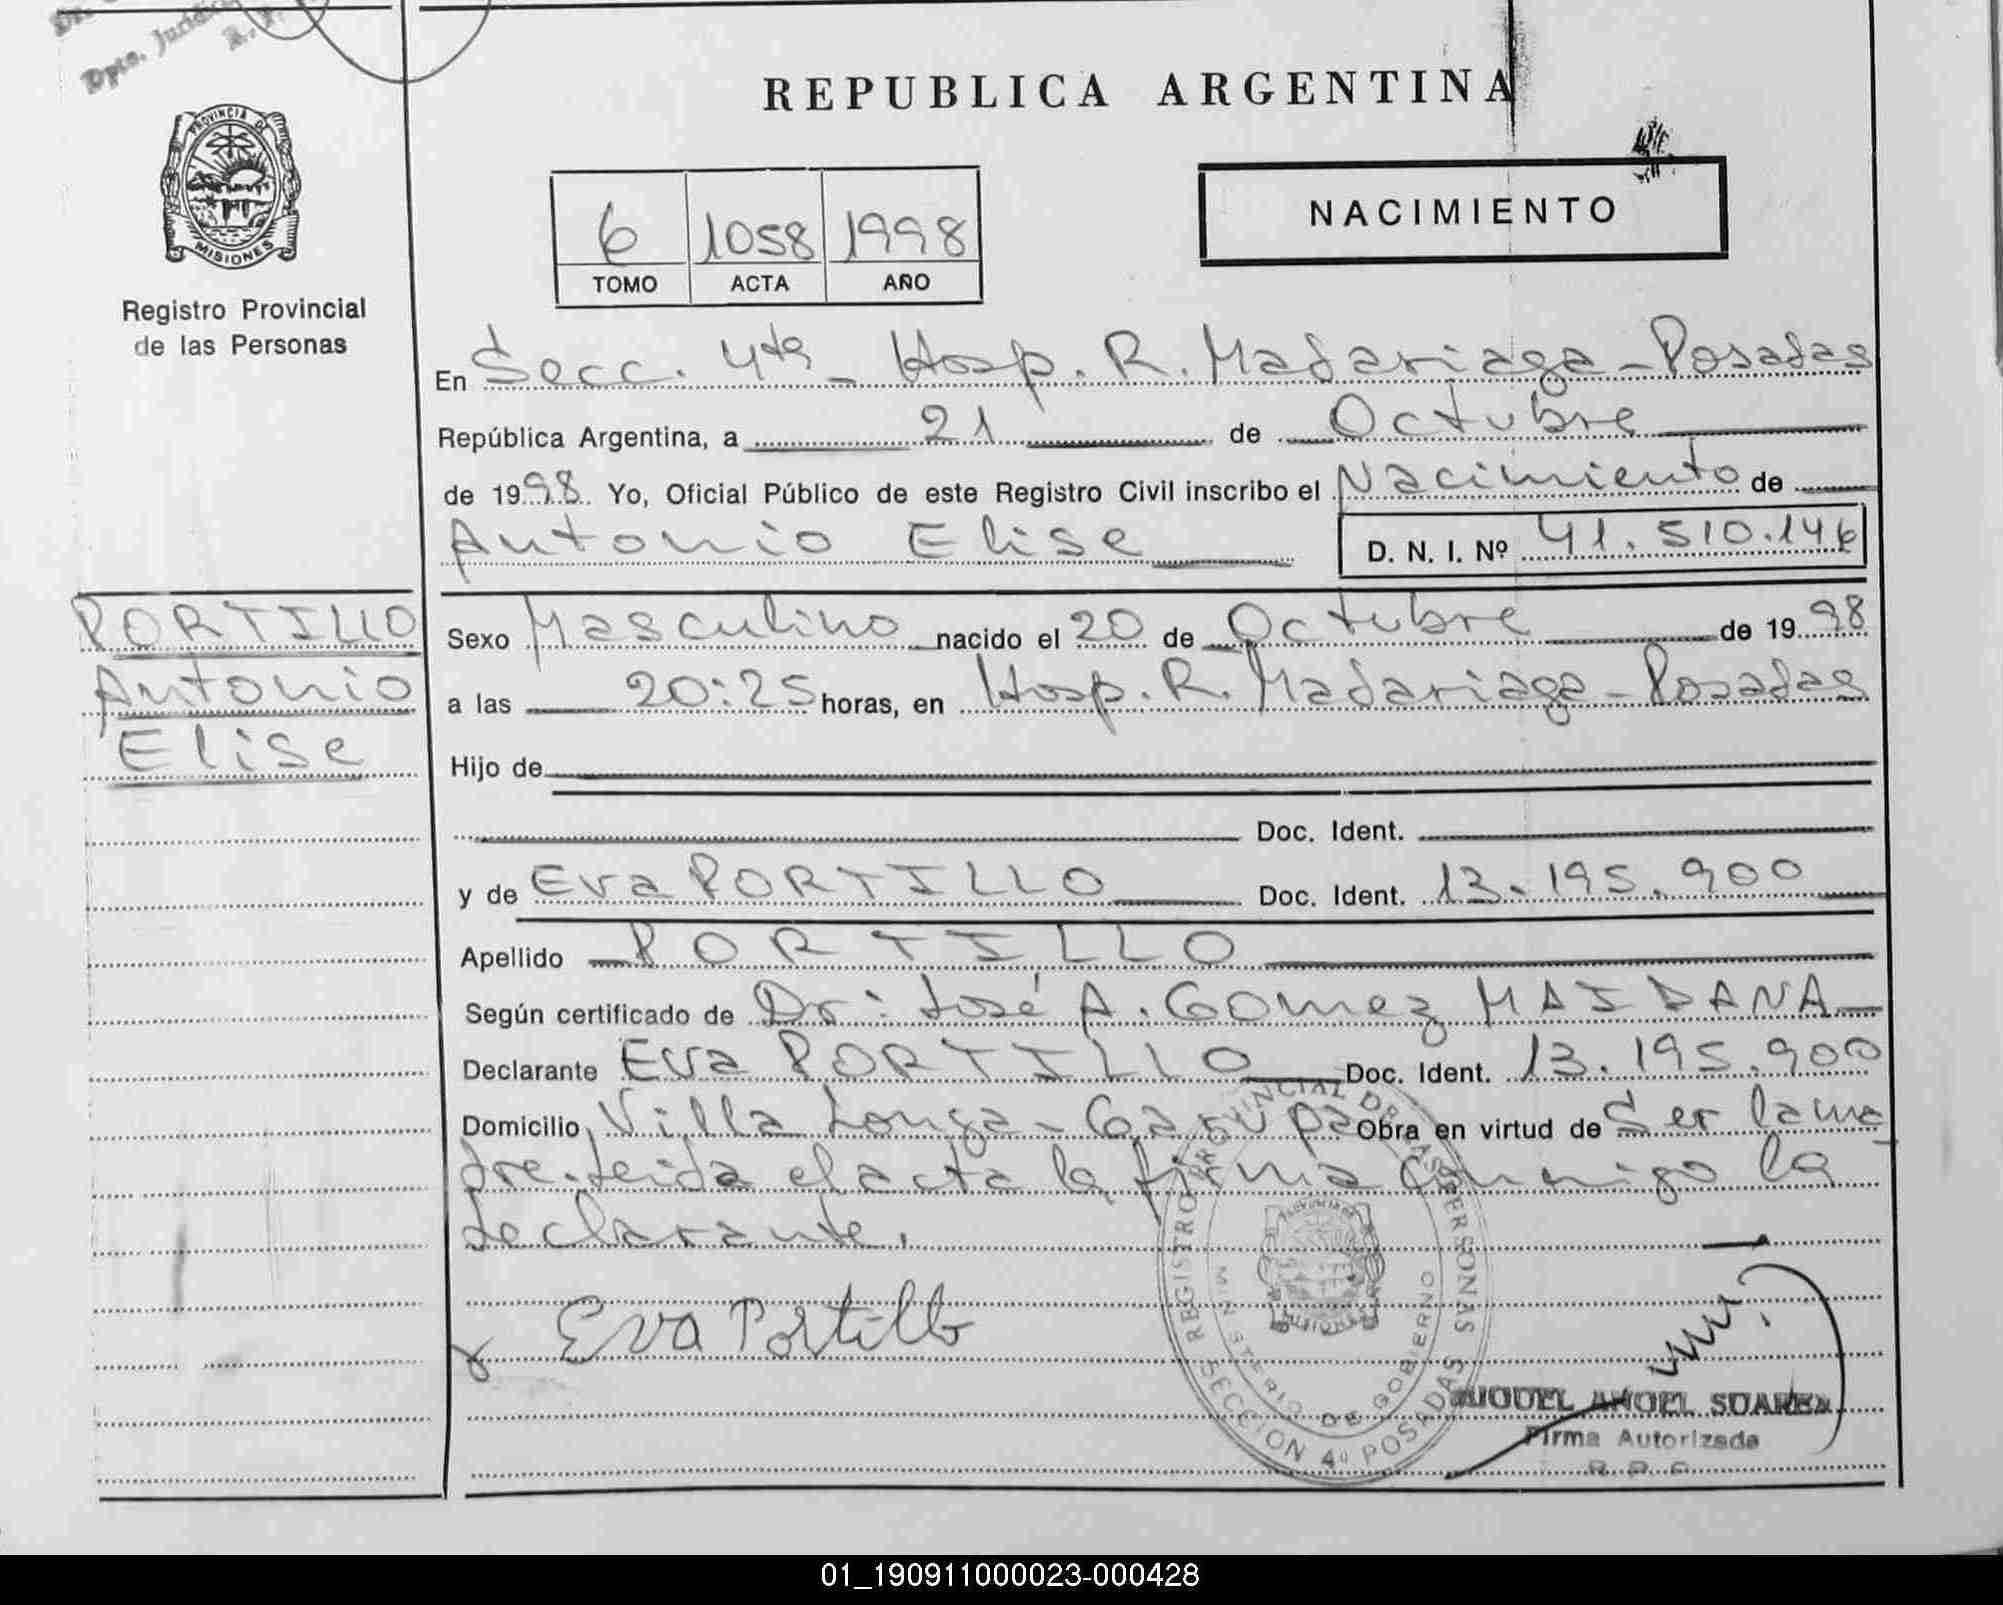 Dpto. Jurídico
REPUBLICA ARGENTINA
PROVINCIA DE
MISIONES
Registro Provincial
de las Personas
6 1058 1998
TOMO ACTA AÑO
NACIMIENTO
En Secc. 4ta - Hosp. R. Madariaga - Posadas
República Argentina, a 21 de Octubre
de 1998. Yo, Oficial Público de este Registro Civil inscribo el Nacimiento de
Antonio Elise D. N. I. Nº 41.510.146
PORTILLO
Antonio
Elise
Sexo Masculino nacido el 20 de Octubre de 1998
a las 20:25 horas, en Hosp. R. Madariaga - Posadas
Hijo de
Doc. Ident.
y de Eva PORTILLO Doc. Ident. 13.195.900
Apellido PORTILLO
Según certificado de Dr: José A. Gomez MAIDANA
Declarante Eva PORTILLO Doc. Ident. 13.195.900
Domicilio Villa Longa - Garupa Obra en virtud de Ser la ma
dre. Leida el acta la firma conmigo la
declarante.
Eva Portillo
REGISTRO PROVINCIAL DE LAS PERSONAS
MINISTERIO DE GOBIERNO
MISIONES
SECCION 4ª POSADAS
MIGUEL ANGEL SUAREZ
Firma Autorizada
01_190911000023-000428